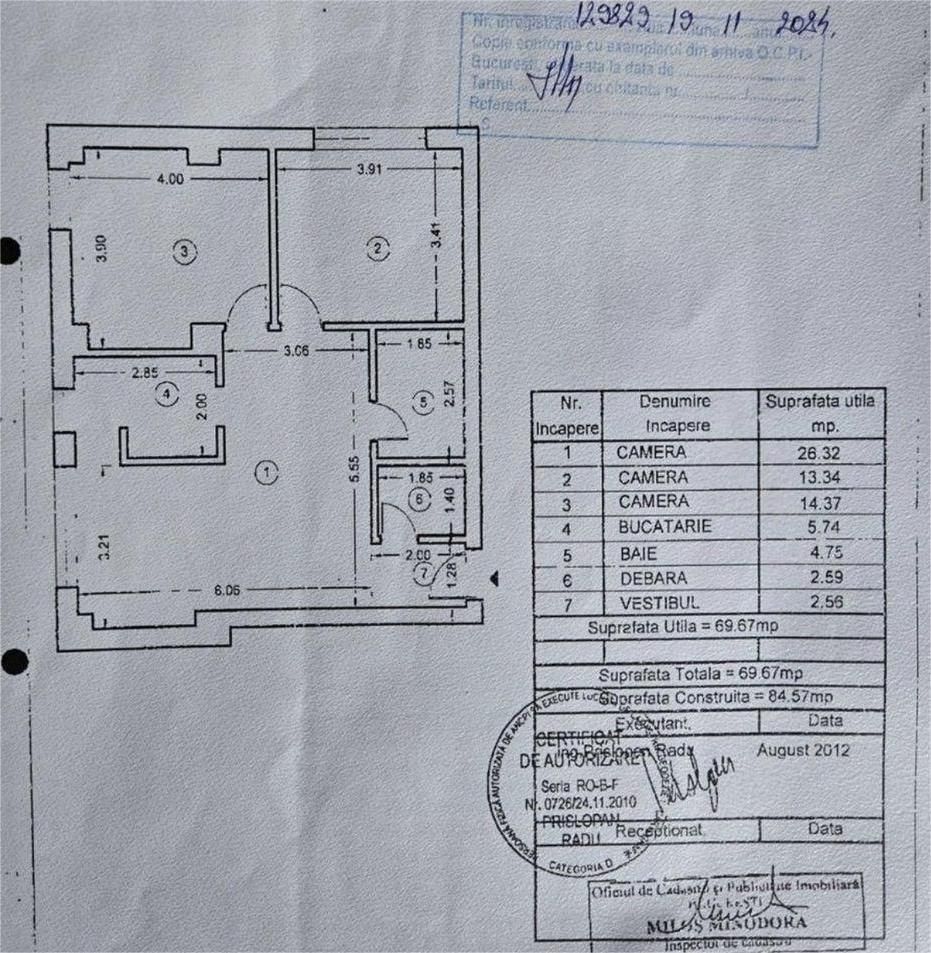 129829 19 11 2024.
Nr. inregistrare
Copie conforma cu exemplarul din arhiva O.C.P.I.-
Bucuresti, eliberata la data de
Tariful....cu chitanta nr............/............
Referent
4.00
3.91
3.90
3
2
3.41
3.06
1.85
2.85
4
2.00
5
2.57
1
5.55
1.85
6
1.40
3.21
2.00
7
1.28
6.06
Nr. Incapere
Denumire Incapere
Suprafata utila mp.
1 CAMERA 26.32
2 CAMERA 13.34
3 CAMERA 14.37
4 BUCATARIE 5.74
5 BAIE 4.75
6 DEBARA 2.59
7 VESTIBUL 2.56
Suprafata Utila = 69.67mp
Suprafata Totala = 69.67mp
Suprafata Construita = 84.57mp
Executant, Data
Ing. Prislopan Radu August 2012
CERTIFICAT
DE AUTORIZARE
Seria RO-B-F
Nr. 0726/24.11.2010
PRISLOPAN
RADU
CATEGORIA D
Receptionat, Data
Oficiul de Cadastru și Publicitate Imobiliară
MILOȘ MINODORA
Inspector de cadastru